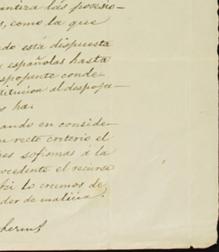 antiza las posesio-
, como la que
do está dispuesta
españolas hasta
conde-
titucion al despoja-
ha.
ando en conside-
recto criterio el
es sofismas á la
ocedente el recurso
lo creemos de
der de malicia.